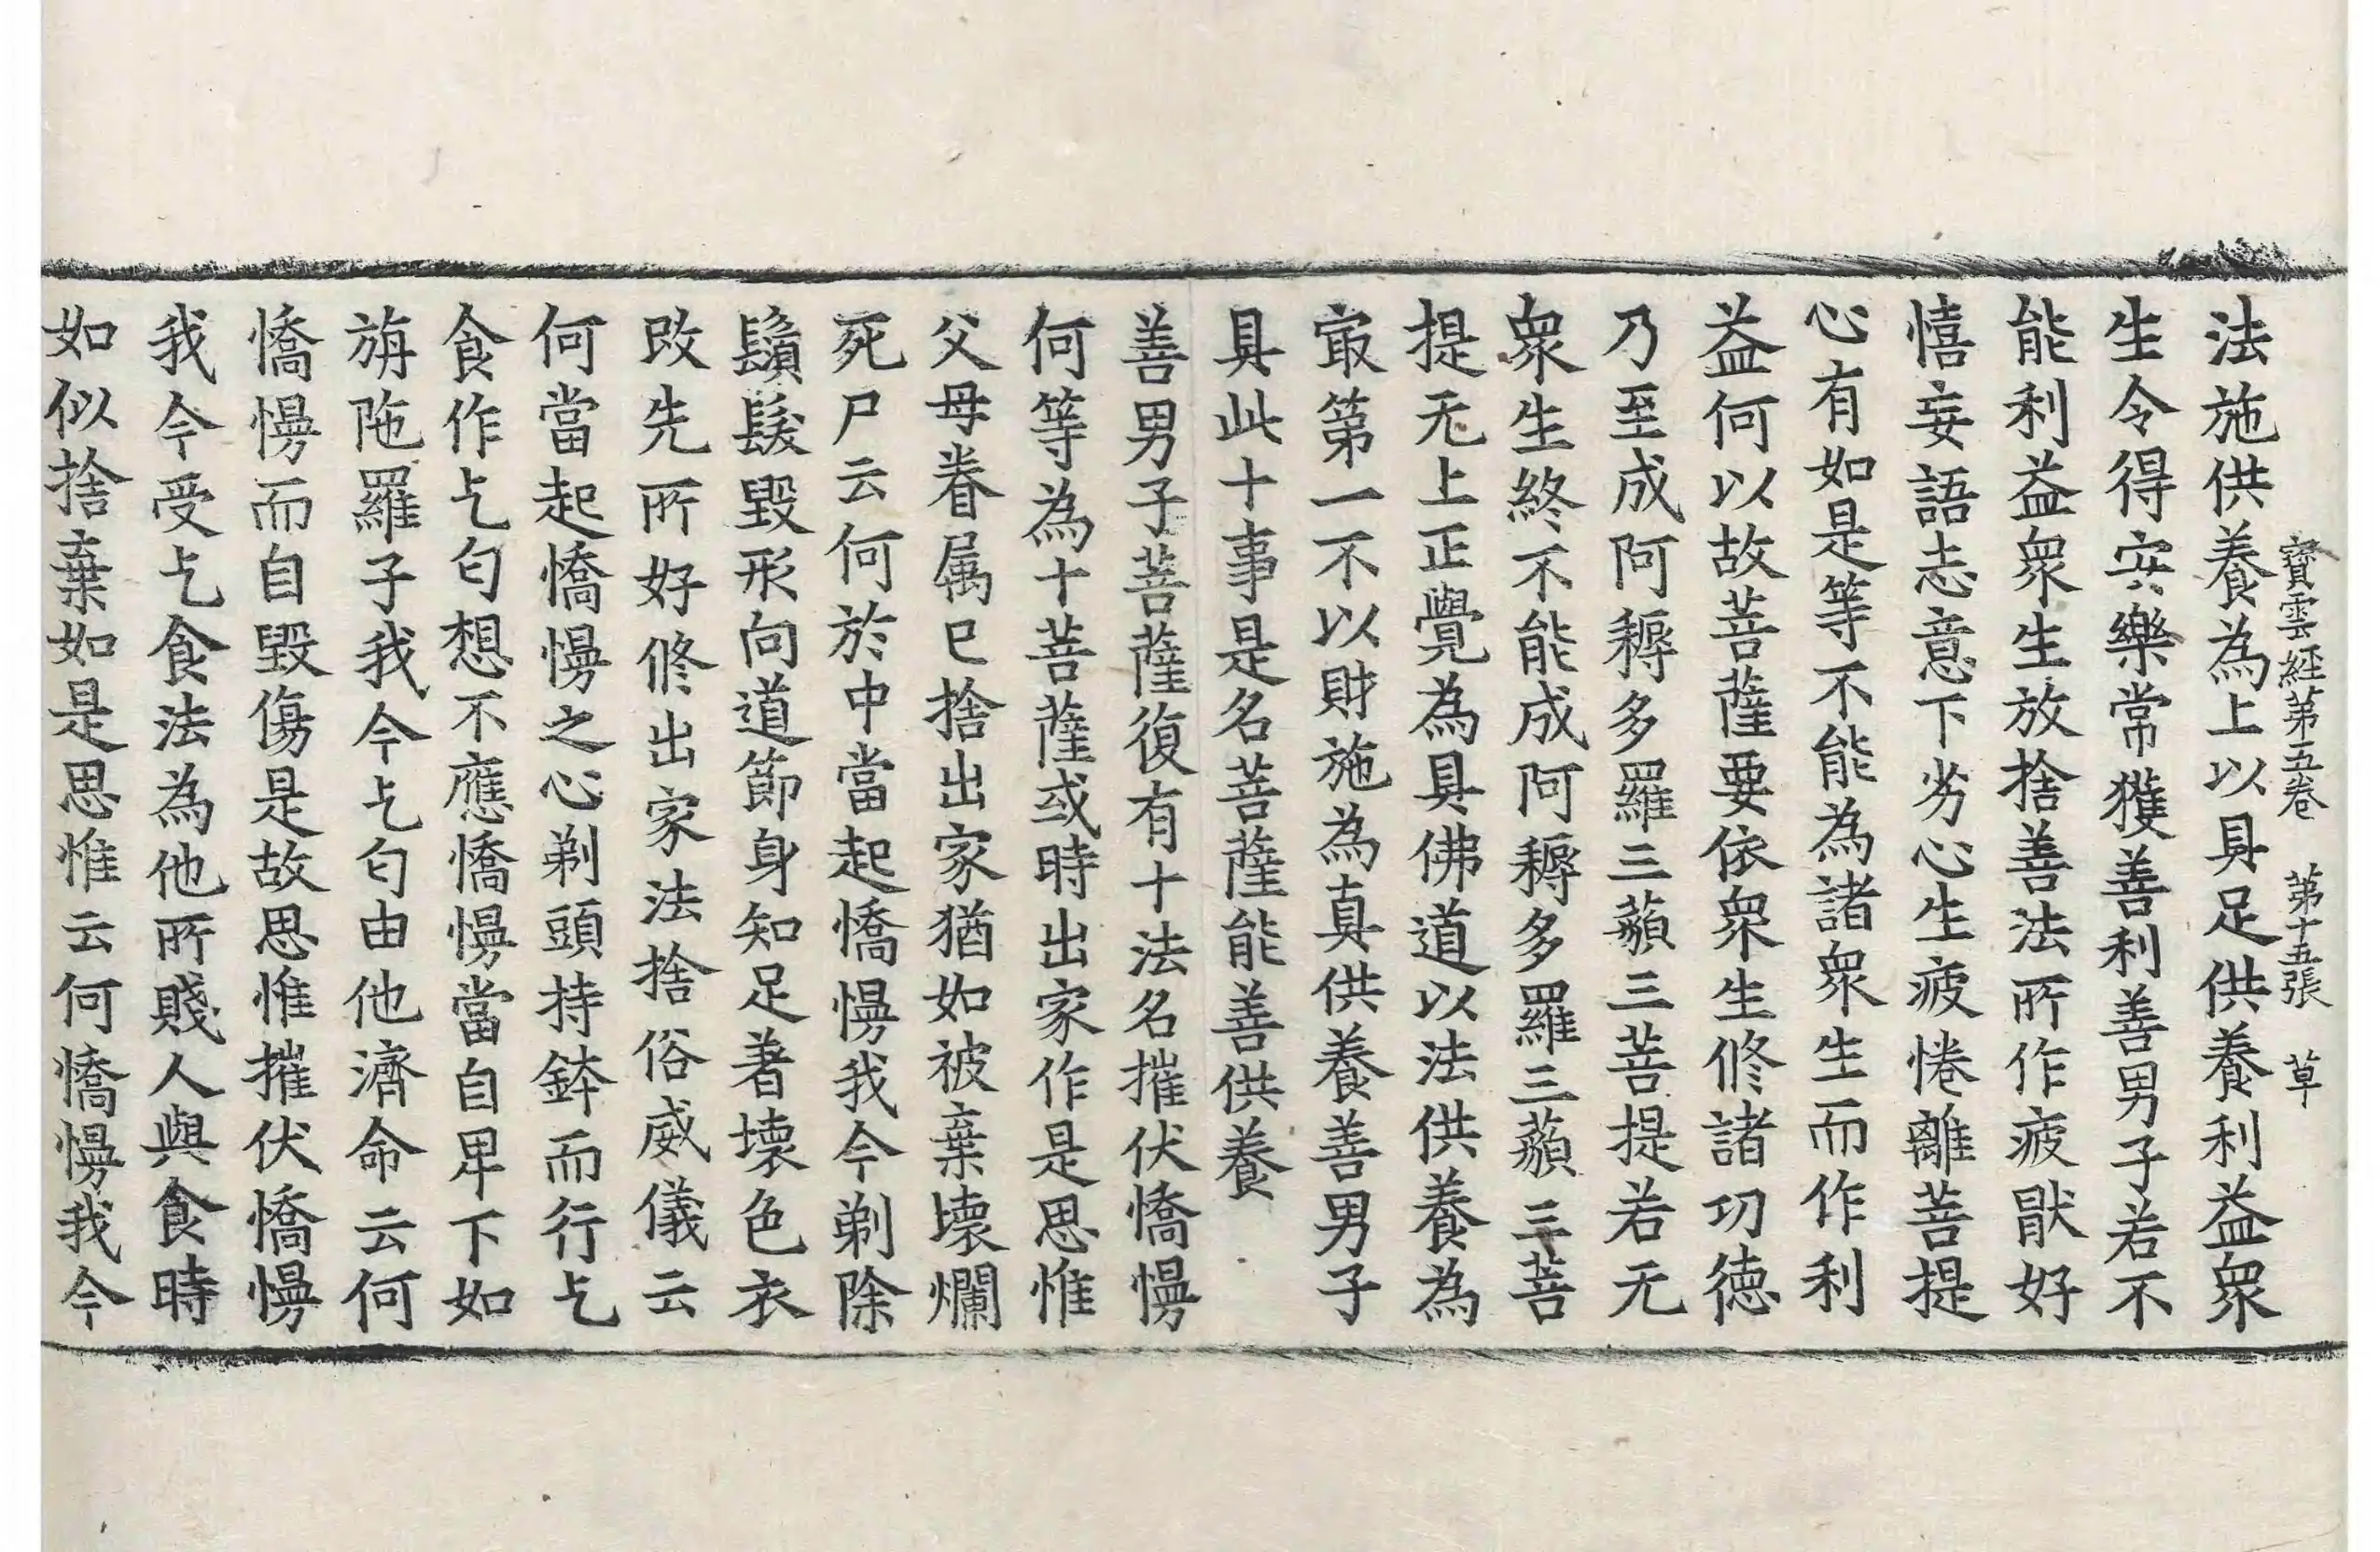 寶雲經第五卷　第十五張　草
法施供養為上以具足供養利益眾
生令得安樂常獲善利善男子若不
能利益眾生放捨善法所作疲猒好
憘妄語志意下劣心生疲惓離菩提
心有如是等不能為諸眾生而作利
益何以故菩薩要依眾生修諸功德
乃至成阿耨多羅三藐三菩提若无
眾生終不能成阿耨多羅三藐三菩
提无上正覺為具佛道以法供養為
冣第一不以財施為真供養善男子
具此十事是名菩薩能善供養
善男子菩薩復有十法名摧伏憍慢
何等為十菩薩或時出家作是思惟
父母眷属已捨出家猶如被棄壞爛
死尸云何於中當起憍慢我今剃除
鬚髮毀形向道節身知足著壞色衣
改先所好修出家法捨俗威儀云
何當起憍慢之心剃頭持鉢而行乞
食作乞匄想不應憍慢當自卑下如
旃陁羅子我今乞匄由他濟命云何
憍慢而自毀傷是故思惟摧伏憍慢
我今受乞食法為他所賤人與食時
如似捨棄如是思惟云何憍慢我今